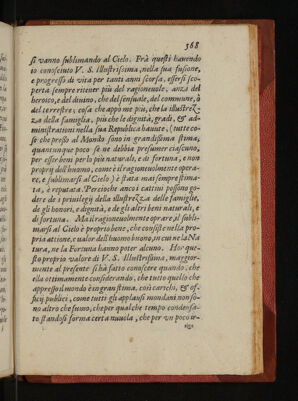 368
si vanno sublimando al Cielo. Frà questi hauendo
io conosciuto V. S. Illustrissima, nella sua fusione,
e progresso di vita per tanti anni scorsa, essersi scoperta
sempre ritener più del ragioneuole, anzi del
heroico, e del diuino, che del sensuale, del commune, ò
del terrestre; cosa che appò me più, che la illustrezza
della famiglia, più che le dignità, gradi, & administrationi
nella sua Republica hauute, (tutte cose
che presso al Mondo sono in grandissima stima,
quantunque poco se ne debbia presumer ciascuno,
per esser beni per lo più naturali, e di fortuna, e non
proprij dell'huomo, come è il ragioneuolmente operare,
e sublimarsi al Cielo) è stata mai sempre stimata,
è reputata. Percioche anco i cattini possono godere
de i priuilegij della illustrezza delle famiglie,
de gli honori, e dignità, e de gli altri beni naturali, e
di fortuna. Ma il ragioneuolmente oprare, il sublimarsi
al Cielo è proprio bene, che consiste nella propria
attione, e valor dell'huomo buono, in cui ne la Natura,
ne la Fortuna hanno poter alcuno. Hor questo
proprio valore di V. S. Illustrissima, maggiormente
al presente si hà fatto conoscere quando, che
ella ottimamente considerando, che tutto quello che
appresso il mondo è in gran stima, così carichi, & officij
publici, come tutti gli applausi mondani non sono
altro che fumo, che per qualche tempo condensato
standosi forma certa nuuola, che per vn poco ir-